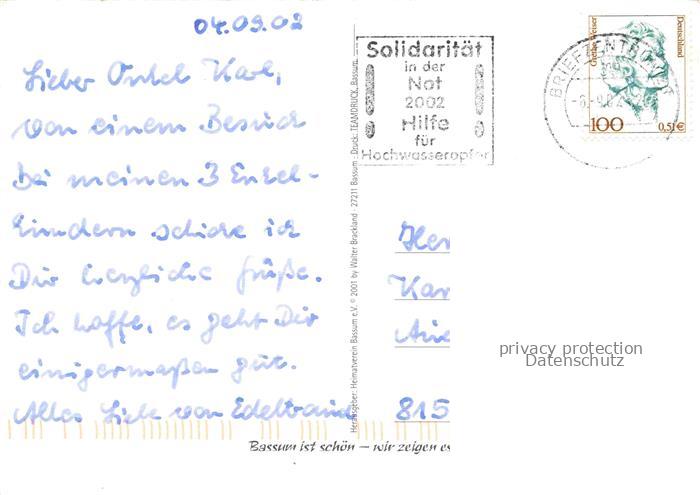 04.09.02
Lieber Onkel Karl,
von einem Besuch
bei meinen 3 Enkel-
kindern schicke ich
Dir herzliche Grüße.
Ich hoffe, es geht Dir
einigermaßen gut.
Alles Liebe von Edeltraud
Herausgeber: Heimatverein Bassum e.V. © 2001 by Walter Brackland · 27211 Bassum · Druck: TEAMDRUCK, Bassum
Solidarität
in der
Not
2002
Hilfe
für
Hochwasseropfer
BRIEFZENTRUM
Grethe Weiser
Deutschland
100
0,51€
Her
Kar
815
privacy protection
Datenschutz
Bassum ist schön – wir zeigen es